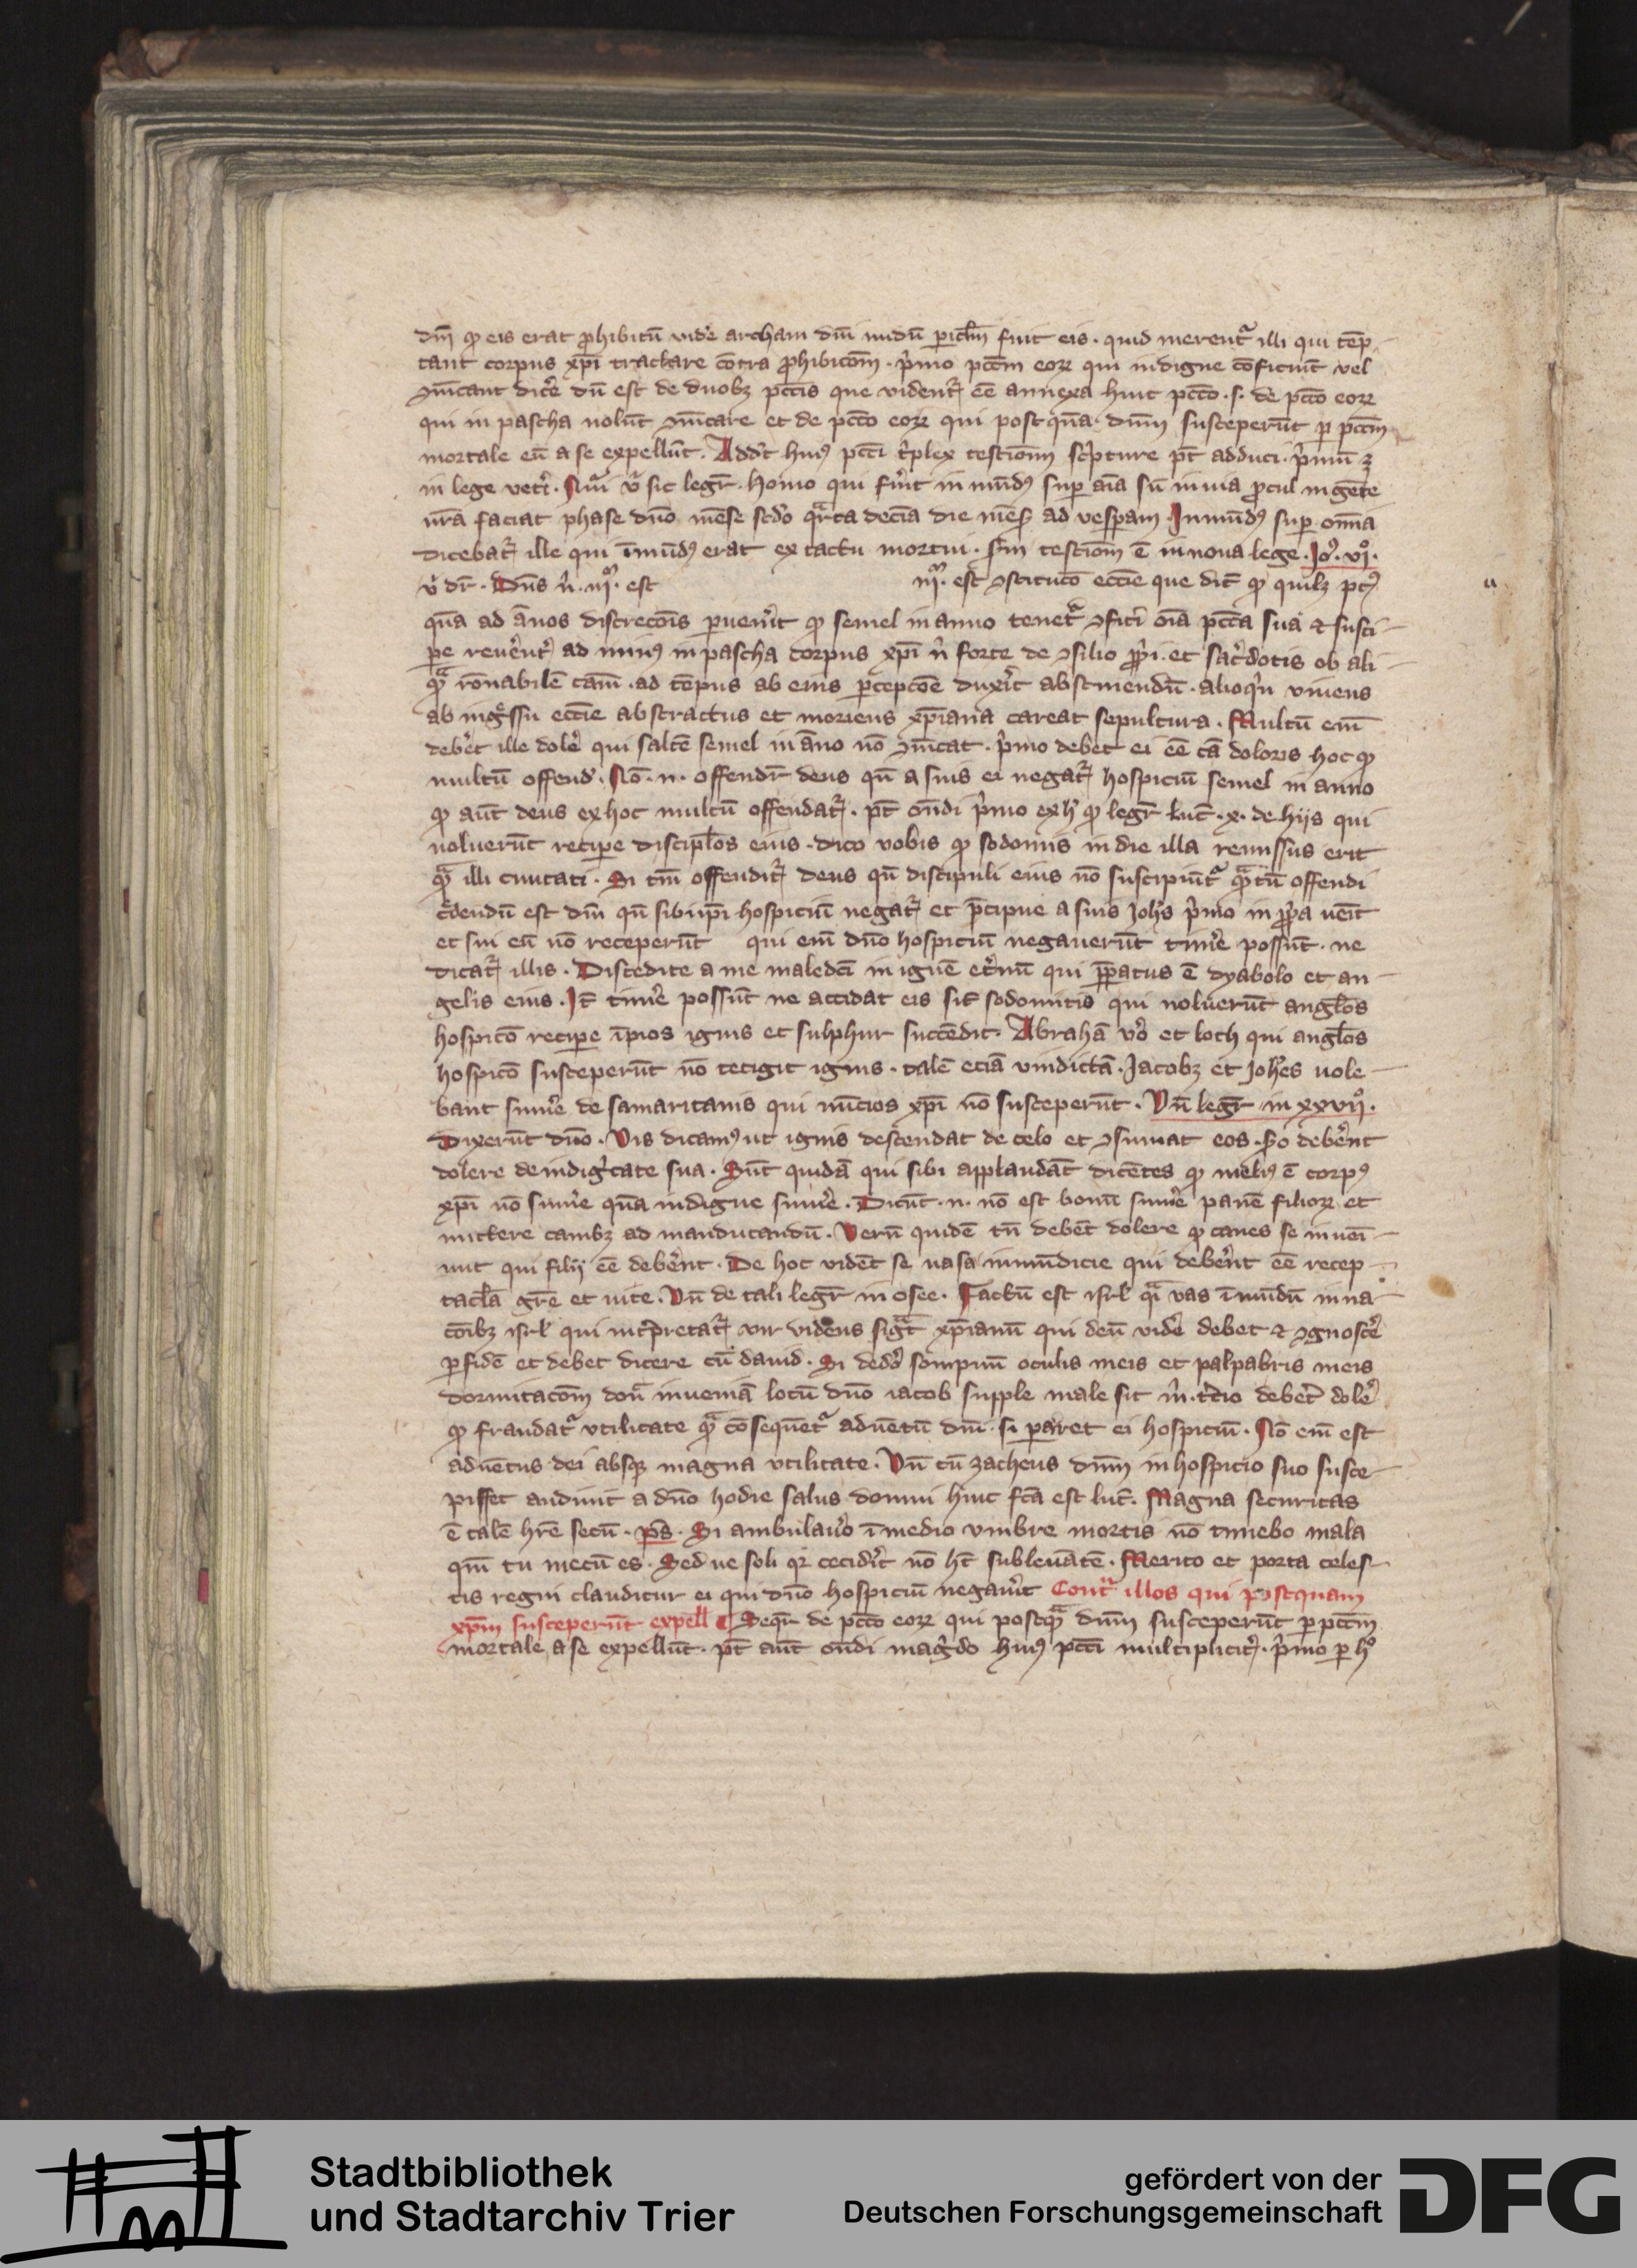 dm̄ qꝫ eis erat ꝓhibitū vidẻ archam dn̄i nudū ꝑicl̄m fuit eis · quid merent᷑ illi qui tēp
tant corpus xp̄i tractare cōtra ꝓhibicōm̄ · p̍mo pc̄cm eoꝝ qui indigne cōficiūt vel
ꝯm̄cant dicẻ dū est de duobꝫ pc̄cis que vident᷑ ēe annexa huic pc̄co · s · de pc̄co eoꝝ
qui in pascha nolūt ꝯm̄care et de pc̄co eoꝝ qui postqua̅ · dn̄m susceperūt ꝑ pc̄cm
mortale eū a se expellūt · Add̓t huiꝰ pc̄ci t̍plex testiom̄ sc̍pture pt̄ adduci · p̍mū ꝫ
in lege vet̍i · v̍ sic legr̄ · Homo qui fu̍it in mūdꝰ suꝑ aīa sū in uia ꝓcul in gēte
vr̄a faciat phase dn̄o mēse scdo qr̄ta decīa die mēs̄ ad vesꝑam · Inmūdꝰ suꝑ om̄a
dicebat᷑ ille qui īmūdꝰ erat ex tactu mortui · sm̄ testiom̄ ē in noua lege · Jo̓ · vi̊ ·
v̍ dr̄ · Dn̄s n̍ · iij̊ · est iij̊ · est ꝯstitucō ecc̄ie que dic̄ qꝫ quilꝫ pc̓
qua̅ ad ānos discrecōis ꝑuenẻit qꝫ semel in anno tenet᷑ ꝯfitẻi oīa pc̄ca sua ⁊ susci
ꝑe reuẻent̓ ad minꝰ in pascha corpus xp̄i n̍ forte de ꝯsilio ꝓpi · et sac̓dotis ob ali
qᷓ rōnabilē cām̄ · ad tēpus ab eius ꝑcepcōe duxẻit abstinendū · alioqͥn viuens
ab ingssu ecc̄ie abstractus et moriens xp̄iana careat sepultura · Multū em̄
debẻt ille dolẻ qui saltē semel in āno nō ꝯm̄cat · p̍mo debet ei ēe cā doloris hoc qꝫ
multū offend̓ · Nō · n · offendr̄ deus qn̄ a suis ei negat᷑ hospiciū semel in anno
qꝫ aūt deus ex hoc multū offendat᷑ · pt̄ on̄di p̍mo ex h̓ qꝫ legr̄ luc̄ · x · de hijs qui
noluerūt recipe discipl̄os eius · dico vobis qꝫ sodomis in die illa remissus erit
qᷓ illi ciuitati · Si tm̄ offendit᷑ deus qn̄ discipuli eius nō suscipiūt᷑ qᷓtū offendi
c̓dendū est dm̄ qn̄ sibiip̄i hospiciū negat᷑ et p̄cipue a suis Joh̓s p̍mo in ꝓpa uēit
et sui eū nō receperūt qui em̄ dn̄o hospiciū negauerūt timẻe possūt · ne
dicat᷑ illis · Discedite a me maledci in ignē et̓nū qui p̄patus ē dyabolo et an
gelis eius · Jt̄ timẻe possūt ne accidat eis sic̄ sodomitis qui noluerūt angl̄os
hospicō recipe īpios ignis et sulphur succēdit · Abrahā v̓o et loth qui angl̄os
hospicō susceperūt nō tetigit ignis · talē eciā vindictā · Jacobꝫ et Joh̓es uole
bant sumẻe de samaritanis qui nūcios xp̄i nō susceperūt · Vn̄ legr̄ in xxvij̊ ·
Dixerūt dn̄o · Vis dicamꝰ ut ignis descendat de celo et ꝯsumat eos · debẻent
dolere de indig̍tate sua · Sūt quidā qui sibi applaudāt dicētes qꝫ meliꝰ ē corpꝰ
xp̄i nō sumẻe qua̅ indigne sumẻe · Dicūt · n · nō est bonū sumẻe panē filioꝝ et
mittere canibꝫ ad manducandū · Verū quidē tn̄ debēt dolere qꝫ canes se inueī
unt qui filij ēe debẻent · De hoc vidēt se uasa inmūdicie qui debẻent ēe recep
tacl̄a gr̄e et uite · Vn̄ de tali legr̄ in osee · Factū est isrl̄ qᷓi vas īmūdū in na
cōibꝫ isrl̄ qui int̓pretat᷑ vir videns sigᷓt xp̄ianū qui deū vidẻ debet ⁊ ꝯgnoscẻe
ꝑ fidē et debet dicere cū dauid · Si dedẻo sompnū oculis meis et palpabris meis
dormitacōm̄ don̄ inueniā locū dn̄o iacob supple male sit m̍ · t̓cio debet̓ dolẻe
qꝫ fraudat᷑ vtilitate qᷓ cōsequet᷑ aduētū dn̄i · si paret ei hospiciū · Nō em̄ est
aduētus dei absqꝫ magna vtilitate · Vn̄ cū zacheus dn̄m in hospicio suo susce
pisset audiuit a dn̄o hodie salus domui huic fc̄a est luc̄ · Magna securitas
ē talē hr̄e secū · ps̄ · Si ambulauẻo ī medio vmbre mortis nō timebo mala
qm̄ tu mecū es · Sed ve soli qꝛ cecidẻit nō ht̄ subleuātē · Merito et porta celes
tis regni clauditur ei qui dn̄o hospiciū negauẻit Contᷓ illos qui postquam
xp̄m susceperūt expell̄ ¶ Seqr̄ de pc̄co eoꝝ qui postqᷓ dn̄m susceperūt ꝑ pc̄cm
mortale a se expellūt · pt̄ aūt on̄di mag̍do huiꝰ pc̄ci multiplicit̓ · p̍mo ꝑ h̊
Stadtbibliothek
und Stadtarchiv Trier
gefördert von der
Deutschen Forschungsgemeinschaft
DFG